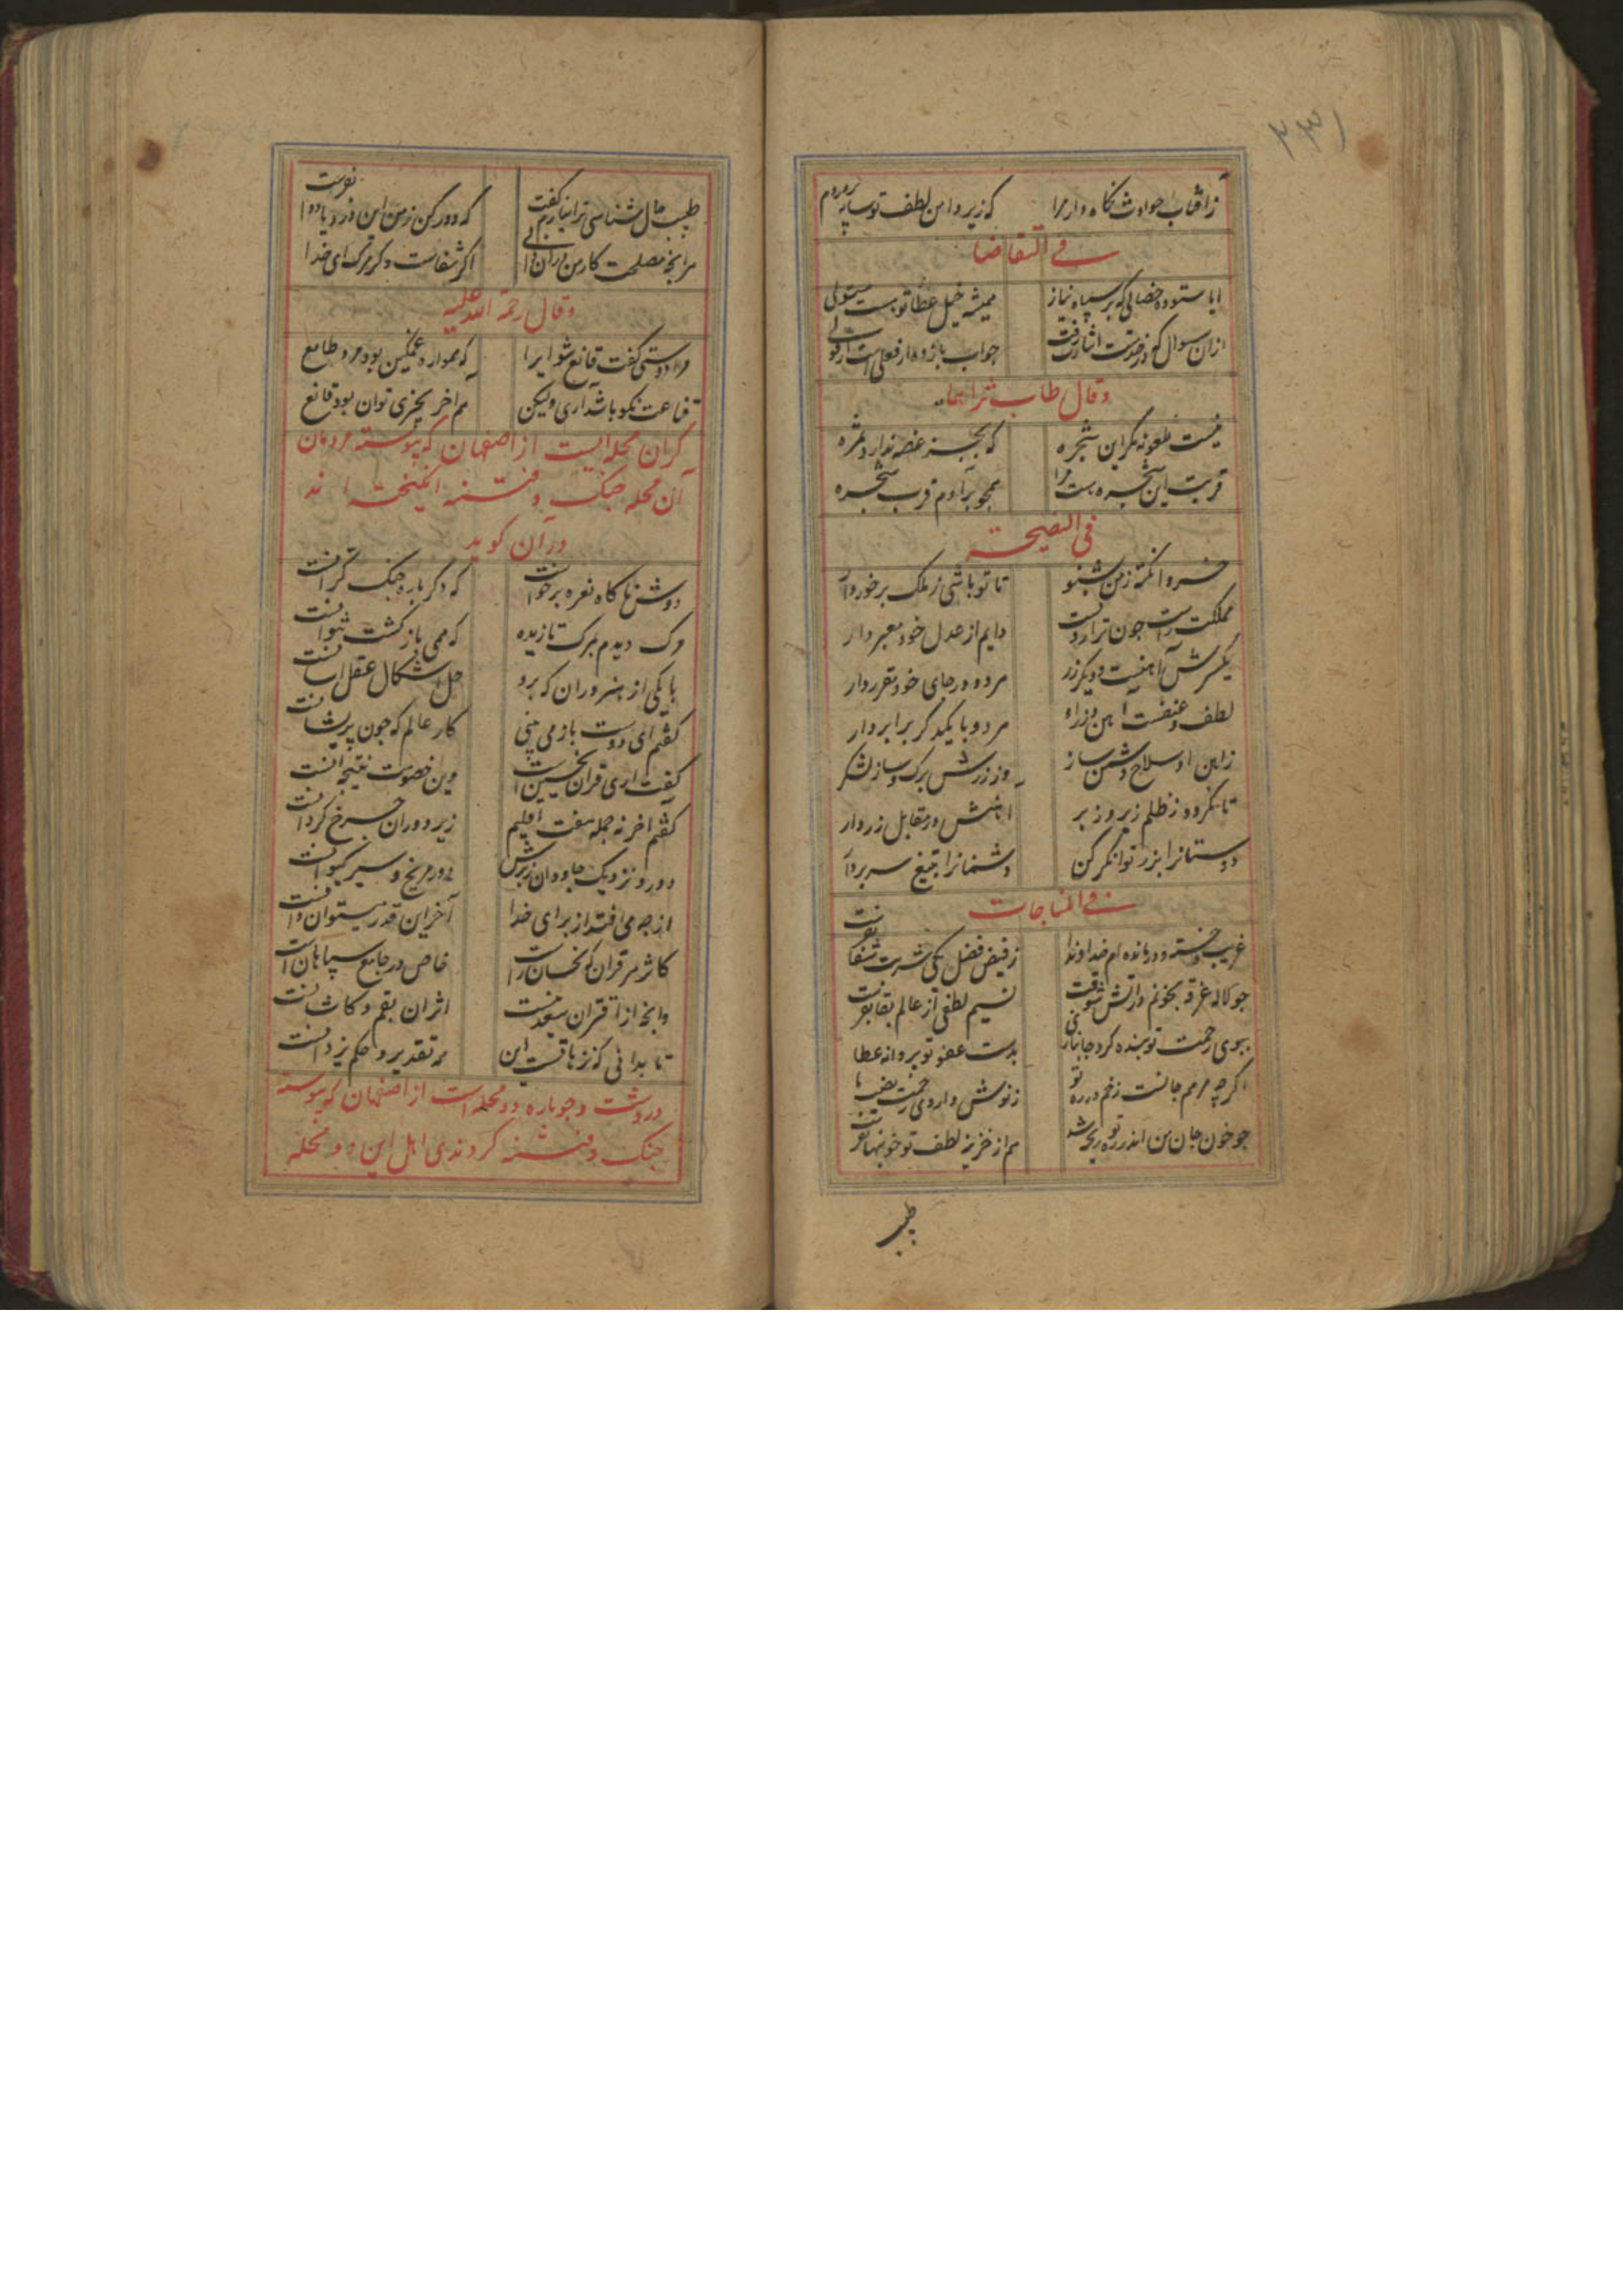 ۲۳۱
زافتاب حوادث نکاه دار مرا که زیر دامن لطف تو سایه پروردم
فی التقاضا
ایا ستوده خصالی که بر سپاه نیاز همیشه خیل عطا تو هست مستولی
ازان سوال که در خدمتت اشارت رفت جواب باز ده ار فعلی است ار قولی
وقال طاب ثراهما
نیست ملعونه مکر این شجره که بجز غصه ندارد ثمره
قربت این شجره هست مرا همجو بر آدم قرب شجره
فی النصیحته
خسروا نکته زمن بشنو تا تو باشی ز ملک برخوردار
مملکت راست جون ترازوئست دایم از عدل خود معبر دار
یکسرش آهنیست و دیکر زر هر دو در جای خود مقرر دار
لطف و عنفست آهن و زر او هر دو با یکدکر برابر دار
زاهن او سلاح دشمن ساز وز زرش برک و ساز لشکر
تا نکردد ز ظلم زیر و زبر آهنش در مقابل زر دار
دوستانرا بزر توانکر کن دشمنانرا بتیغ سر بردار
فی المناجات
غریب و خسته و درمانده ام خداوندا ز فیض فضل یکی شربت شفا بفرست
جو لاله غرقه بخونم در آتش شوقت نسیم لطفی از عالم بقا بفرست
ببوی رحمت تو بنده کرد جانبازی بدست عفو تو پروانه عطا
اکر چه مرهم جانست زخم در ره تو ز نوش داروی رحمت نصیب ما
جو خون جان من اندر ره تو ریخته شد هم از خزینه لطف تو خونبها بفرست
طبیب
طبیب حال شناسی ترا نیارم کفت که دور کن ز من این درد یا دوا بفرست
هر انجه مصلحت کار من دران دانی اکر شفاست و کر مرک ای خدا
وقال رحمة الله علیه
مرا دوستی کفت قانع شو ایرا که همواره غمکین بود مرد طامع
قناعت نکو باشد آری ولیکن هم آخر بچیزی توان بود قانع
کران محله ایست از اصفهان که پیوسته مردمان
آن محله جنک و فتنه انکیخته اند
در آن کوید
دوش ناکاه نعره برخواست که دکر باره جنک کرانست
مرک دیدم بمرک تازیده که همی بازکشت نتوانست
با یکی از هنروران که برو حل اشکال عقل آسانست
کفتم ای دوست باز می بینی کار عالم که جون پریشانست
کفت آری قران نحسین است وین خصومت نتیجه آنست
کفتم آخر نه جمله هفت اقلیم زیر دوران جرخ کردانست
دور و نزدیک جاودان زبرش دور مریخ و سیر کیوانست
از جه می افتد از برای خدا آخر این قدر میتوان دانست
کاثر مر قران نحسان را خاص در جامع سپاهان است
وانجه از اقتران سعدینست اثر آن بقم و کاشانست
تا بدانی که ترهاتست این همه تقدیر و حکم یزدانست
دردشت و جوباره دو محله است از اصفهان که پیوسته
جنک و فتنه کردندی اهل این دو محله